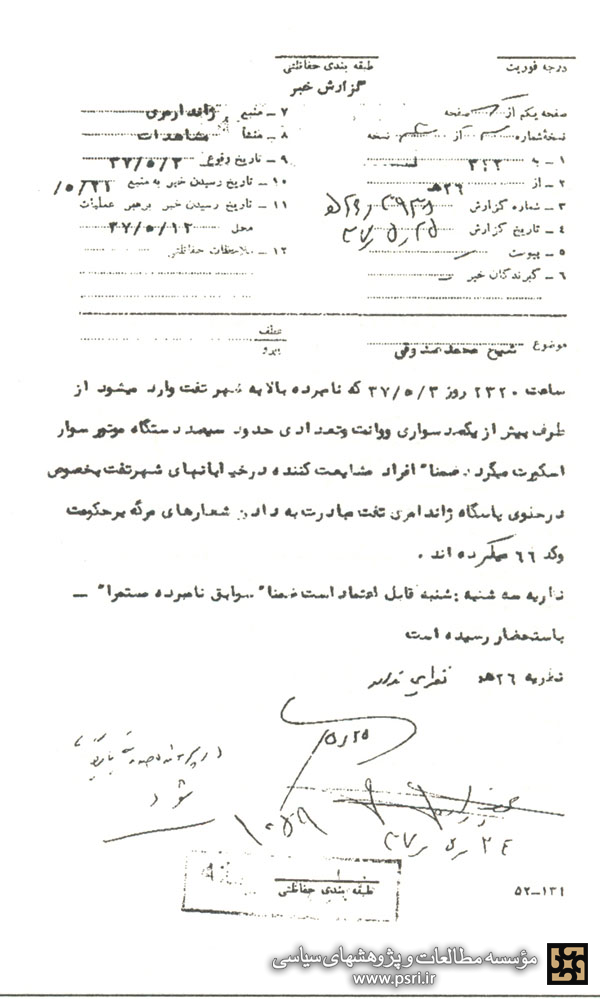 درجه فوریت
طبقه بندی حفاظتی
گزارش خبر
صفحه یکم از صفحه
نسخه شماره از نسخه
۱ – به ۳۲۲
۲ – از ۲۶هـ
۳ – شماره گزارش
۴ – تاریخ گزارش ۳۷٫۵٫۲۵
۵ – پیوست
۶ – گیرندگان خبر
۷ – منبع ژاندارمری
۸ – منشأ مشاهدات
۹ – تاریخ وقوع ۳۷/۵/۳
۱۰ – تاریخ رسیدن خبر به منبع
۱۱ – تاریخ رسیدن خبر برهبر عملیات
محل ۳۷/۵/۱۲
۱۲ – ملاحظات حفاظتی
موضوع شیخ محمدصدوقی
عطف
پیرو
ساعت ۲۳۲۰ روز ۳۷/۵/۳ که نامبرده بالا به شهر تفت وارد میشود از
طرف بیش از یکصد سواری ووانت وتعدادی حدود سیصد دستگاه موتور سوار
اسکورت میگردد ضمنا" افراد مشایعت کننده درخیابانهای شهرتفت بخصوص
درجلوی پاسگاه ژاندارمری تفت مبادرت به دادن شعارهای مرگ بر حکومت
وکد ۶۶ میکرده اند .
نظریه سه شنبه : شنبه قابل اعتماد است ضمنا" سوابق نامبرده مستمرا" –
باستحضار رسیده است
نظریه ۲۶هـ نظری ندارد
۵/۲۵
در پرونده بایگانی
شود
۳۷٫۵٫۲۴
طبقه بندی حفاظتی
۵۲–۱۳۱
مؤسسه مطالعات و پژوهشهای سیاسی
www.psri.ir